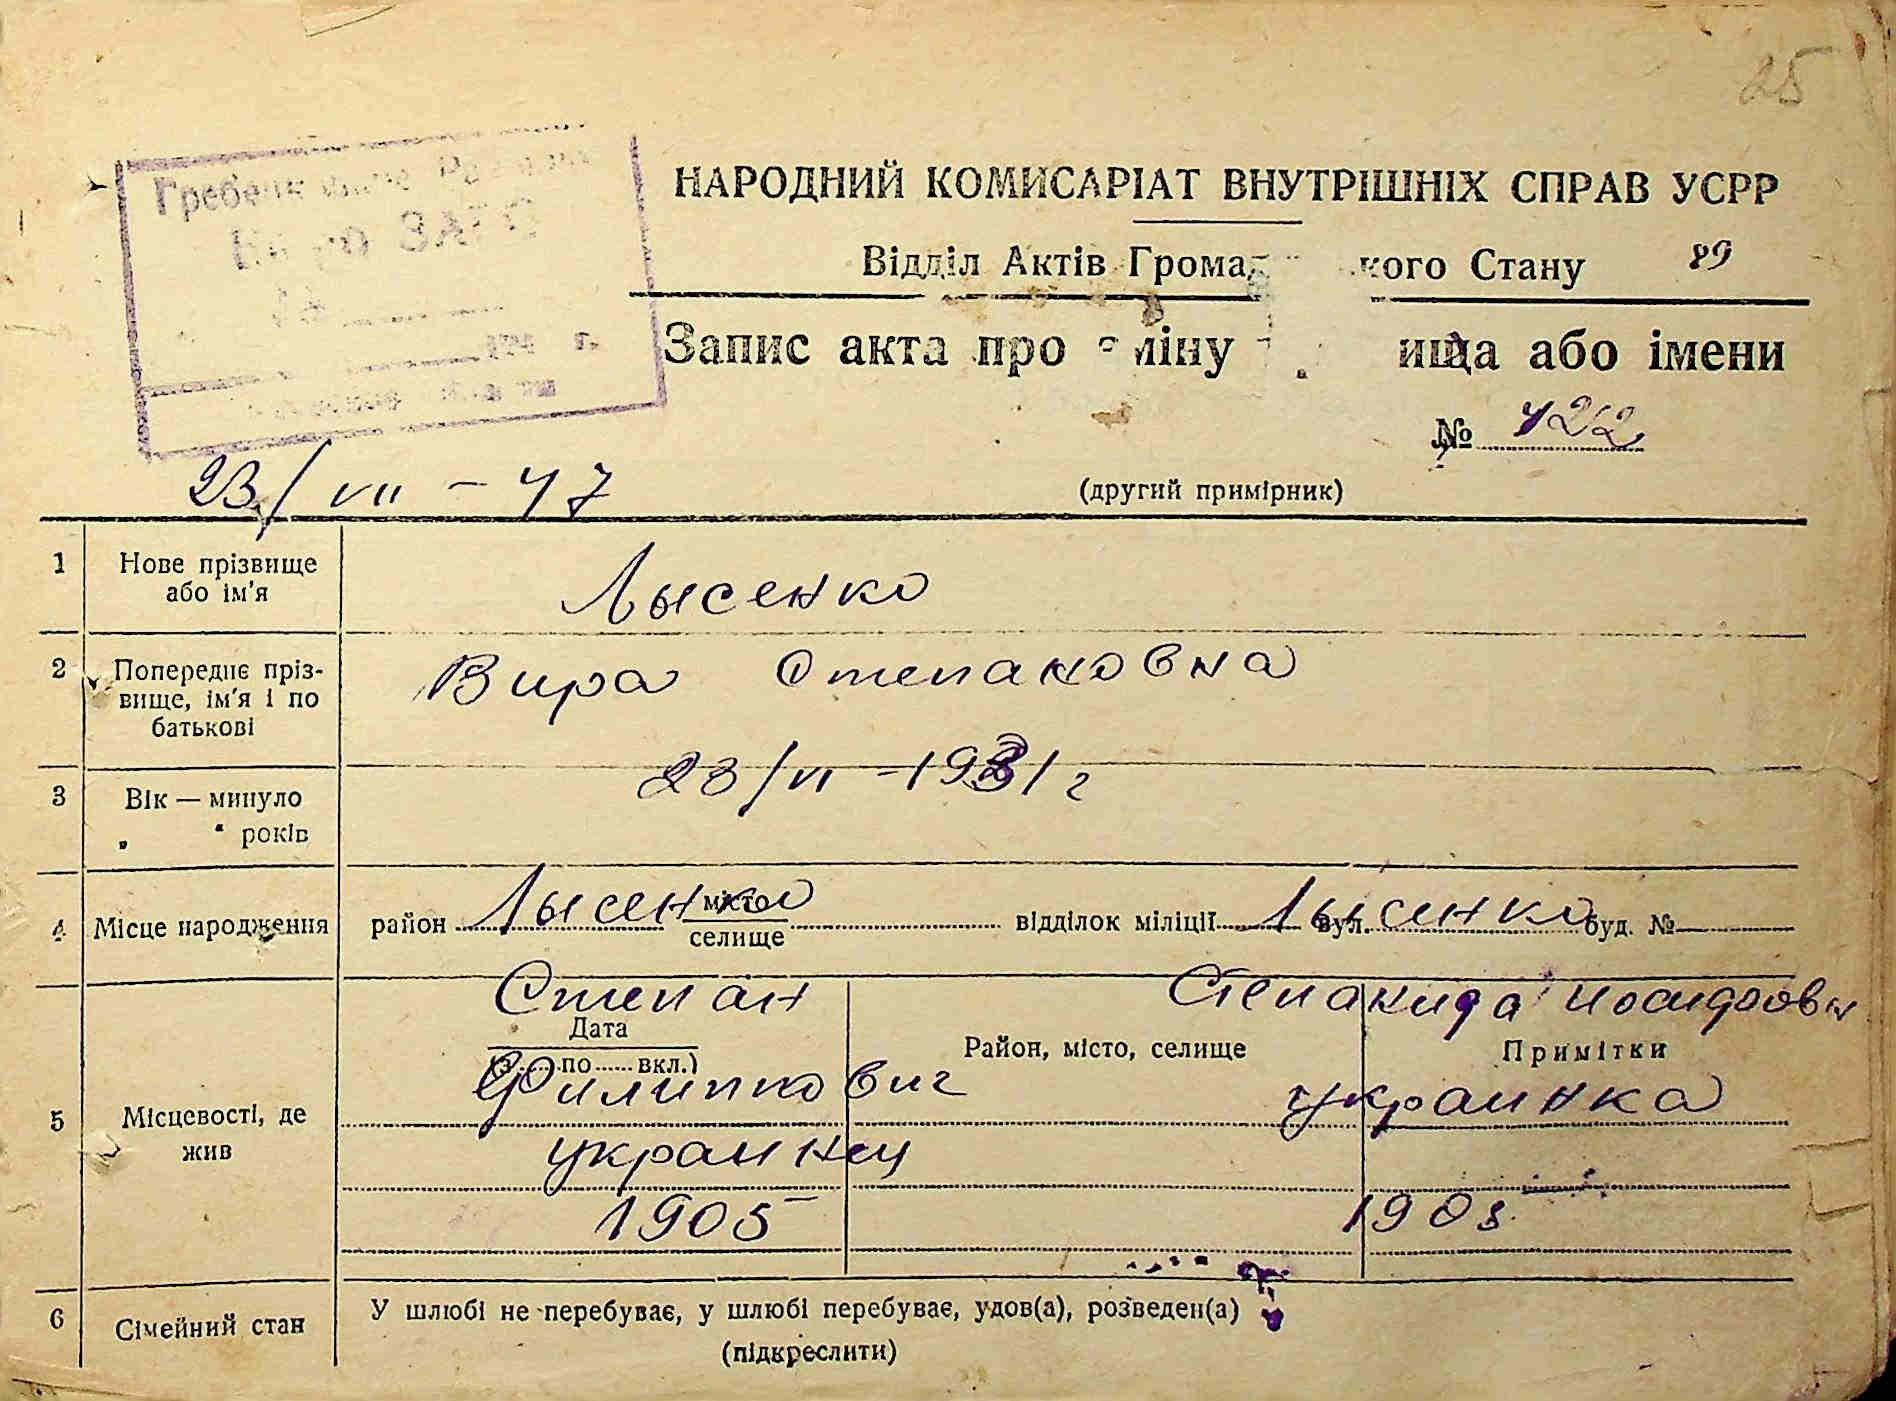 25
НАРОДНИЙ КОМИСАРІАТ ВНУТРІШНІХ СПРАВ УСРР
Відділ Актів Грома кого Стану 89
Запис акта про міну ища або імени
№ 422
(другий примірник)
23/VII - 47
1 Нове прізвище або ім'я
Лысенко
2 Попереднє пріз-
вище, ім'я і по
батькові
Вира Степановна
3 Вік — минуло
„ “ років
23/VI - 1931 г
4 Місце народження район місто селище відділок міліції вул. буд. №
Лысенко Лысенко
Степан Степанида
Дата
(з ...... по ...... вкл.)
Район, місто, селище
Примітки
Филиппович украинка
5 Місцевості, де
жив
украинец
1905 1908
6 Сімейний стан
У шлюбі не перебуває, у шлюбі перебуває, удов(а), розведен(а)
(підкреслити)